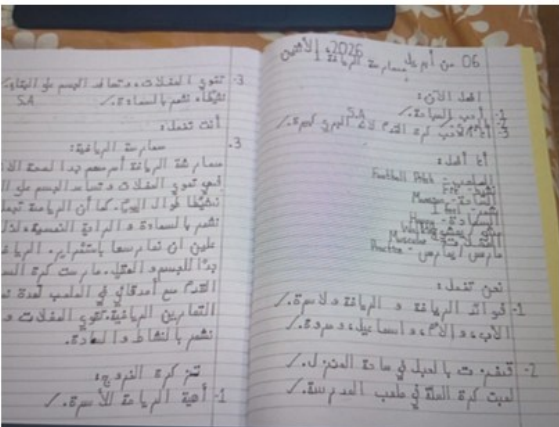 06 من أبريل 2026، الأثنين
ممارسة الرياضة
أفعل الآن:
1- أحب السباحة.
S.A
أنا أفعل:
الملعب - Football Pitch
نشيط - Fit
السّاحة -
أشعر - I feel
السعادة - Happy
يمشي -
العضلات - Muscular
مارس / يمارس - Practice
نحن نفعل:
1- فوائد الرياضة و الرياضة والأسرة.
الأب، و الأم، و اسماعيل، و مروة.
2- قفزت بالحبل في ساحة المنزل.
لعبت كرة السلة في ملعب المدرسة.
3- تقوي العضلات، و تساعد الجسم على البقاء
نشيطا، نشعر بالسعادة.
S.A
أنت تفعل:
3. ممارسة الرياضة:
ممارسة الرياضة أمر مهم جدا لصحة
فهي تقوي العضلات و تساعد الجسم على
نشيطا طوال اليوم. كما أن الرياضة
نشعر بالسعادة و الراحة النفسية، لذا
علين ان نمارسها باستمرار.
جدًا للجسم و العقل. مارست كرة
القدم مع أصدقائي في الملعب لمدة
التمارين الرياضية. تقوي العضلات و
نشعر بالنشاط والسعادة.
تذكرة الخروج:
1- أهمية الرياضة للأسرة.